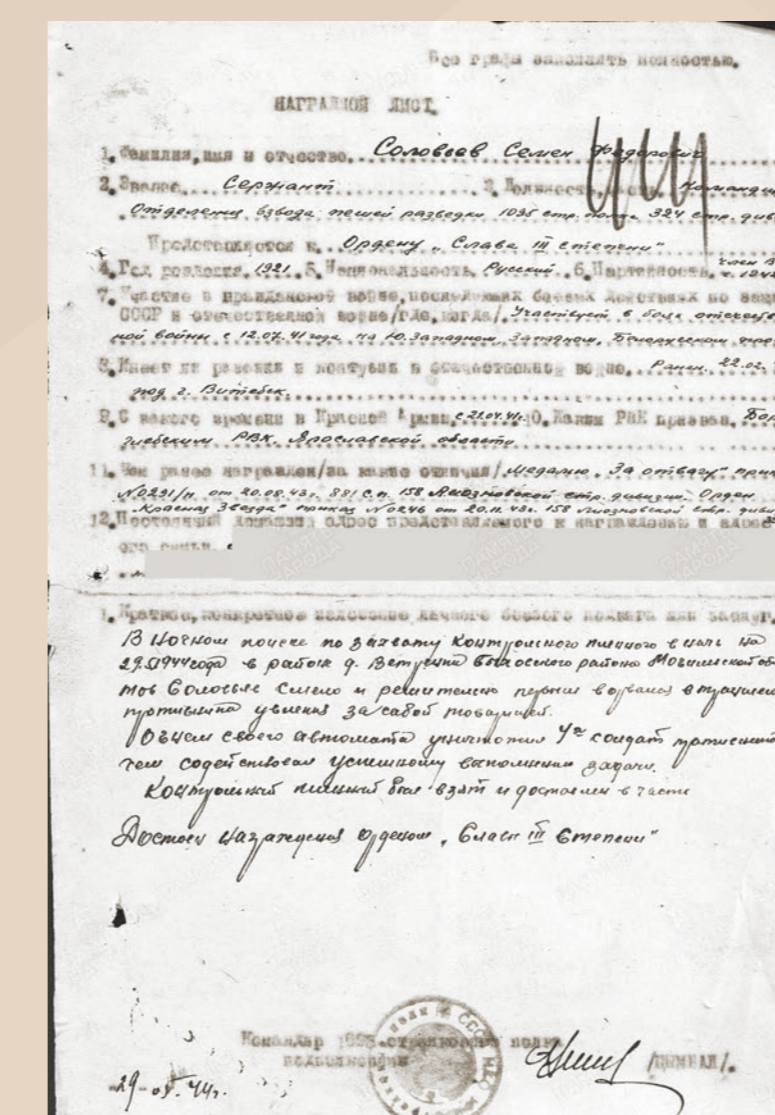 Все графы заполнять полностью.
НАГРАДНОЙ ЛИСТ.
1. Фамилия, имя и отчество... Соловьев Семен Федорович
2. Звание... Сержант ... 3. Должность, часть. Командир
Отделения взвода пешей разведки 1095 стр. полка 324 стр. див
Представляется к... Ордену „Слава III степени"
4. Год рождения. 1921. 5. Национальность. Русский .. 6. Партийность. член В
7. Участие в гражданской войне, последующих боевых действиях по защ
СССР и отечественной войне /где, когда/. Участвует в боях отечестве
ной войны с 12.07.41 года, на Ю.Западном, Западном, Белорусском
8. Имеет ли ранения и контузии в отечественной войне... Ранен. 22.02.
под г. Витебск.
9. С какого времени в Красной Армии. 10. Каким РВК призван. Бор
глебским РВК. Ярославской области
11. Чем ранее награжден /за какие отличия/. Медалью „За отвагу" прик
№0291/н от 20.08.43г. 881 с.п. 158 Лиозновской стр. дивизии. Орден
„Красная Звезда" приказ №0246 от 20.11.43г. 158 Лиозновской стр. диви
12. Постоянный домашний адрес представляемого к награждению и адрес
его семьи.
1. Краткое, конкретное изложение личного боевого подвига или заслуг.
В ночном поиске по захвату контрольного пленного в ночь на
1944 года в районе д. района Могилевской об
тов Соловьев смело и решительно первым ворвался в траншеи
противника увлекая за собой товарищей.
Огнем своего автомата уничтожил 4х солдат противника
тем содействовал успешному выполнению задачи.
Контрольный пленный был взят и доставлен в части
Достоин награждения орденом „Славы III Степени"
Командир стрелкового полка
подполковник
/ЦЫМБАЛ/.